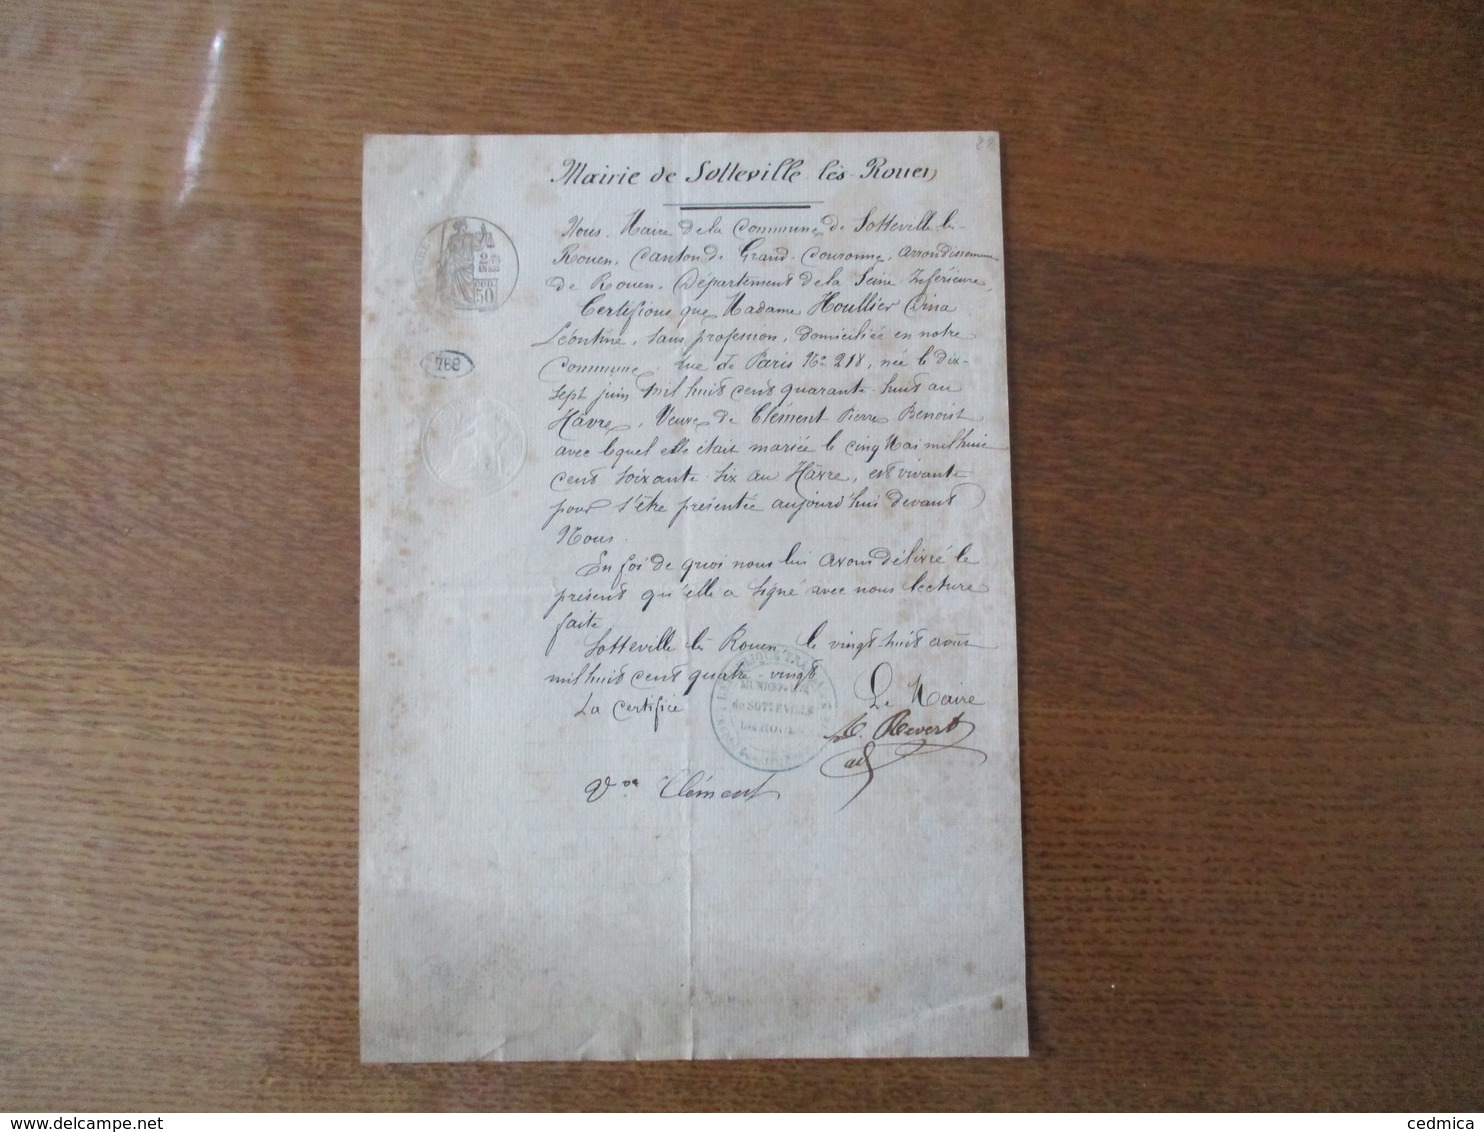 28
Mairie de Sotteville lès-Rouen
Nous, Maire de la Commune de Sotteville lès-
Rouen, Canton de Grand-Couronne, arrondissement
de Rouen, Département de la Seine Inférieure,
Certifions que Madame Houllier Orina
Léontine, sans profession, domiciliée en notre
Commune, rue de Paris No 218, née le dix-
sept juin mil huit cent quarante-huit au
Hâvre, Veuve de Clément Pierre Benoist
avec lequel elle était mariée le cinq Mai mil huit
cent soixante-six au Hâvre, est vivante
pour s'être présentée aujourd'hui devant
Nous.
En foi de quoi nous lui avons délivré le
présent qu'elle a signé avec nous lecture
faite
Sotteville lès Rouen, le vingt-huit août
mil huit cent quatre-vingt
La certifiée
Le Maire
Revert
adj
Vve Clément
2/10
EN SUS
50
788
de SOTTEVILLE
LES ROUEN
cedmica
www.delcampe.net